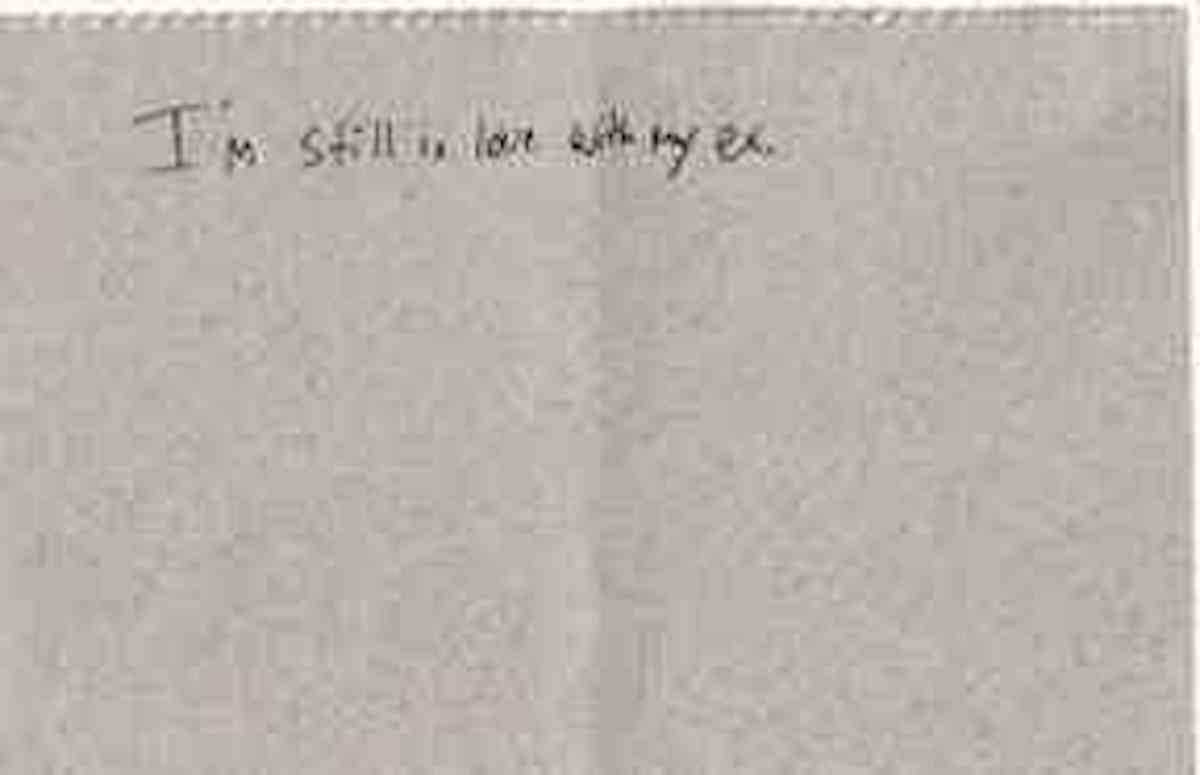 I'm still in love with my ex.